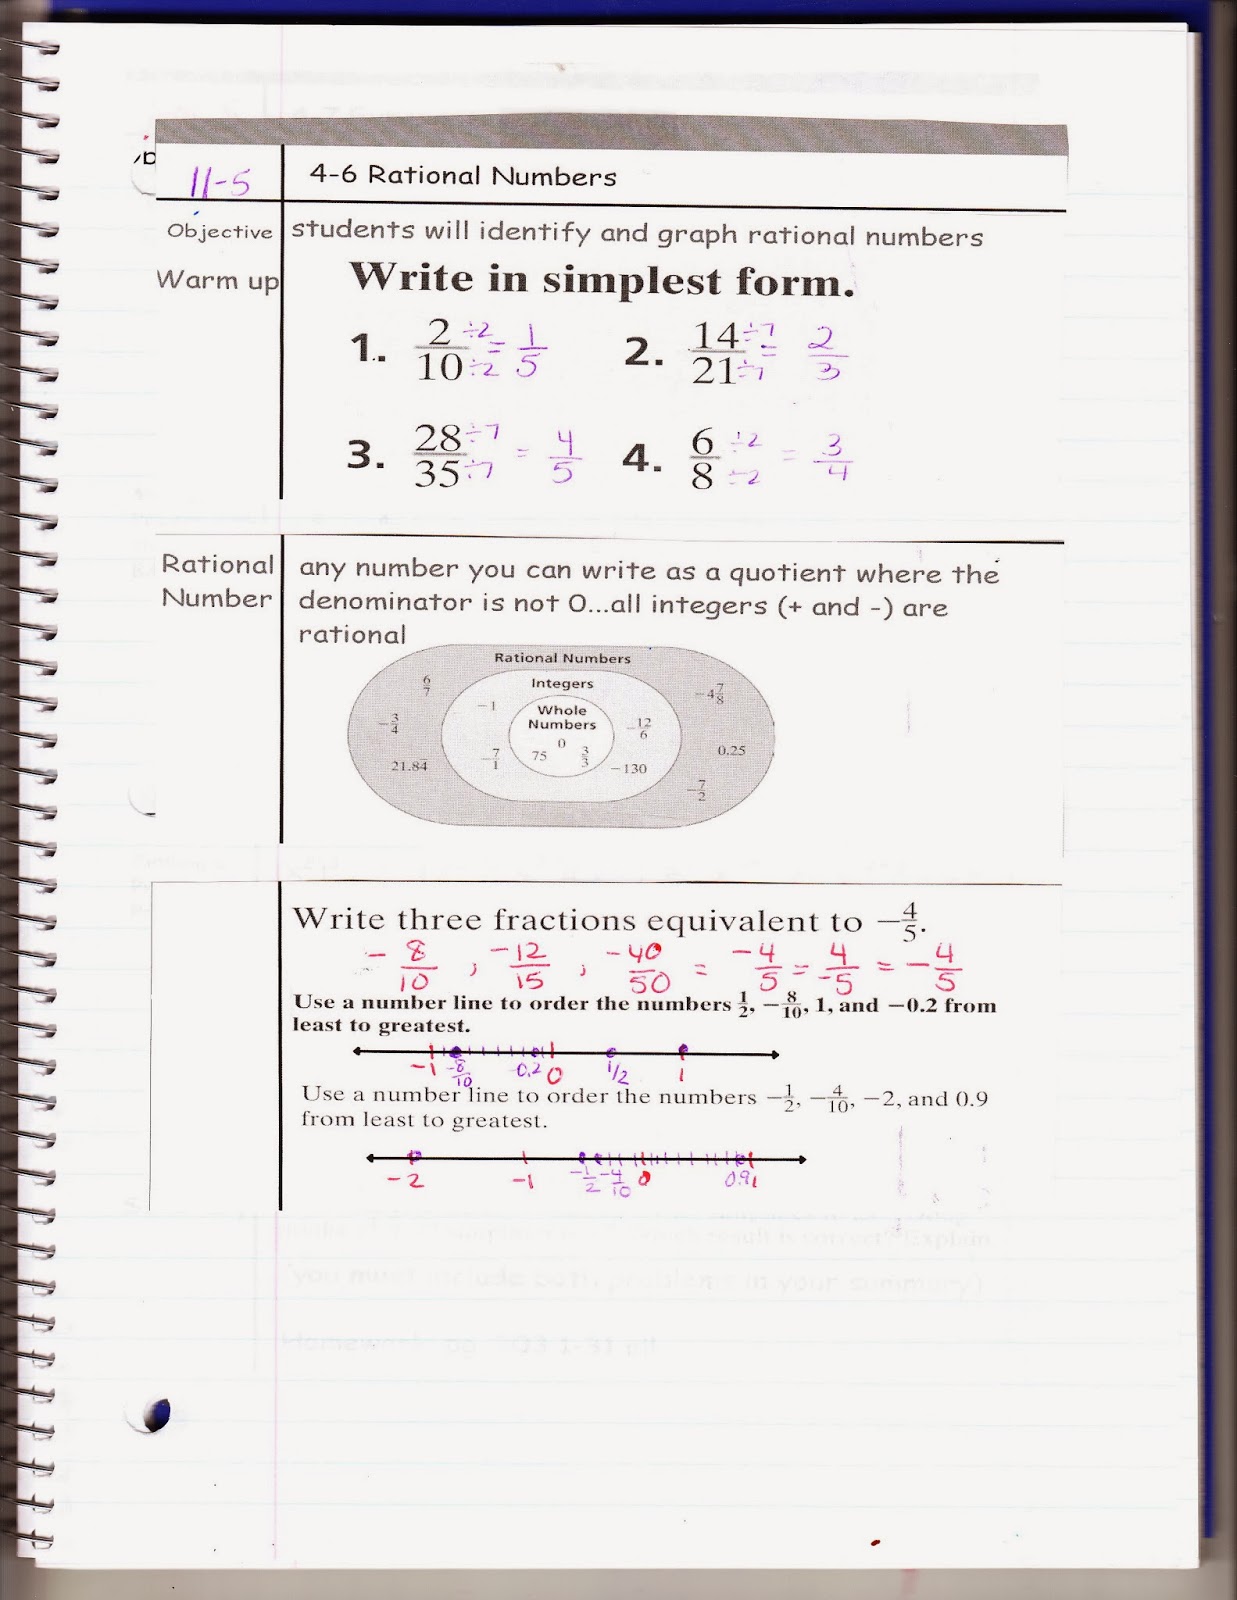 11-5 4-6 Rational Numbers
Objective students will identify and graph rational numbers
Warm up Write in simplest form.
1. 2/10 ÷2/÷2 = 1/5 2. 14/21 ÷7/÷7 = 2/3
3. 28/35 ÷7/÷7 = 4/5 4. 6/8 ÷2/÷2 = 3/4
Rational Number
any number you can write as a quotient where the
denominator is not 0...all integers (+ and -) are
rational
Rational Numbers
Integers
Whole
Numbers
6/7 -1 -4 7/8
-3/4 0 -12/6
21.84̅ -7/1 75 3/3 -130 0.25
-7/2
Write three fractions equivalent to -4/5.
-8/10 ; -12/15 ; -40/50 = -4/5 = 4/-5 = -4/5
Use a number line to order the numbers 1/2, -8/10, 1, and -0.2 from
least to greatest.
-1 -8/10 -0.2 0 1/2 1
Use a number line to order the numbers -1/2, -4/10, -2, and 0.9
from least to greatest.
-2 -1 -1/2 -4/10 0 0.9 1